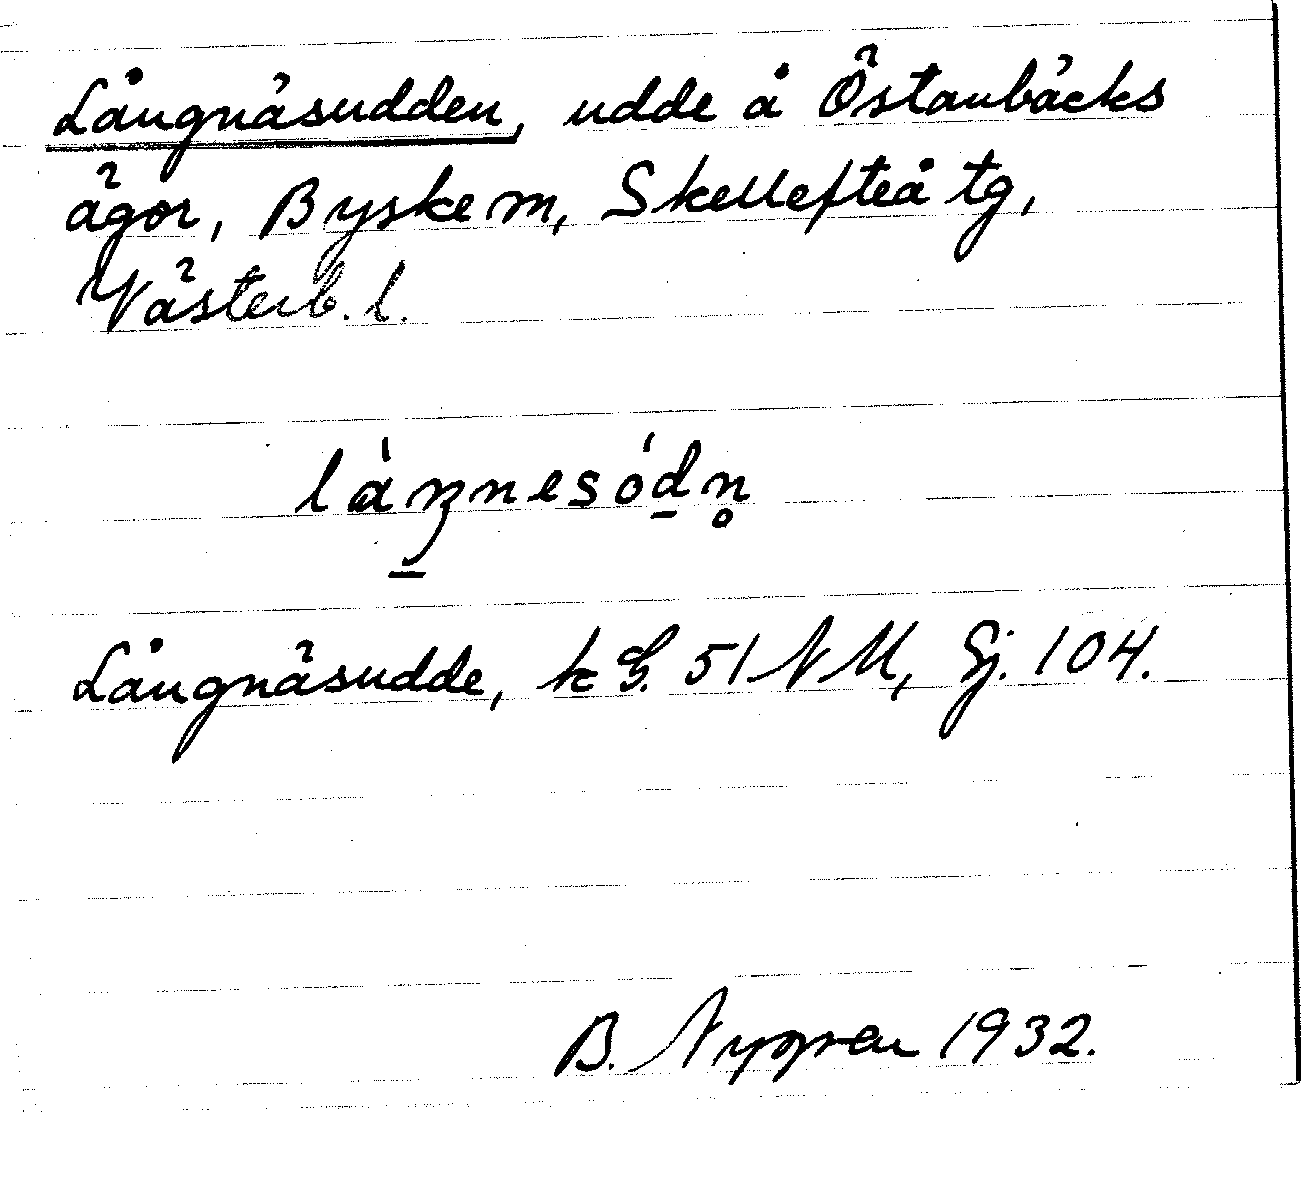 Långnäsudden, udde å Östanbäcks
ägor, Byske m, Skellefteå tg,
Västerb. l.
Långnäsudde, k G. 51 NM, Gj. 104.
B. Nygren 1932.